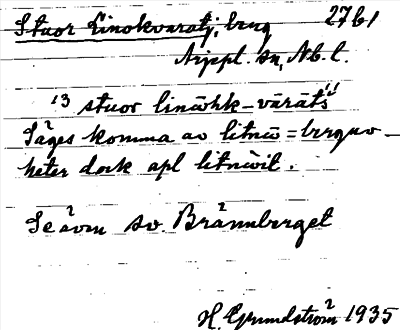 Stuor Linokvaratj, berg 2761
Arjepl. sn, Nb. l.
13 stuor linŏhk-vārāts̆
Säges komma av litnŭ = berguv
heter dock apl litnŭil.
Se även sv. Brännberget
H. Grundström 1935